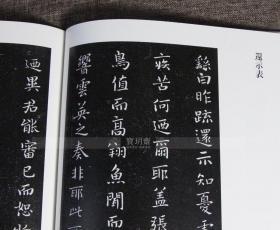 還示表
繇白昨疏還示知憂雲
疾苦何迺爾耶蓋張
鳥值而高翔魚聞而
響雲英之奏非耶此
迺異君能審己而恕